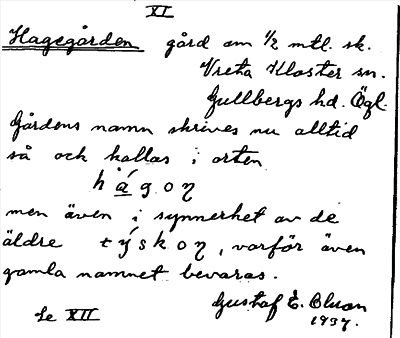 XI
Hagegården gård om 1/2 mtl. sk.
Vreta Kloster sn.
Gullbergs hd. Ögl.
Gårdens namn skrives nu alltid
så och kallas i orten
hág o η
men även i synnerhet av de
äldre týsk o η, varför även
gamla namnet bevaras.
Gustaf E. Bluon
1937.
Se XII